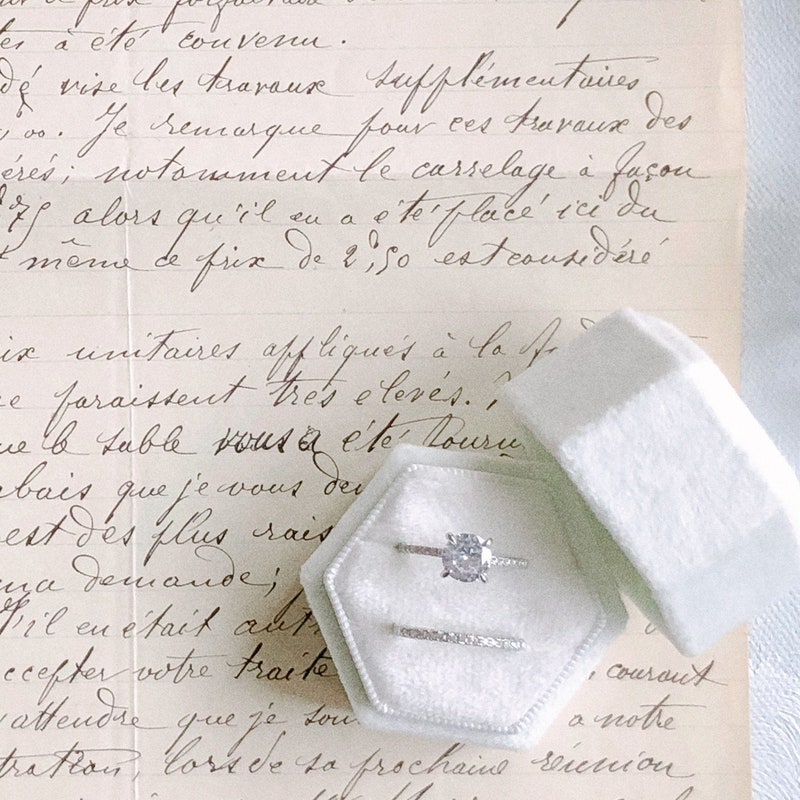 à été convenu.
vise les travaux supplémentaires
,00. Je remarque pour ces travaux des
érés; notamment le carrelage à façon
75 alors qu'il en a été placé ici du
même ce prix de 2,50 est considéré
ix unitaires appliqués à la
paraissent très élevés.
le sable vous a été fourn
abais que je vous de
est des plus rais
ma demande;
'il en était aut
ccepter votre traite , courant
attendre que je sou à notre
tration, lors de sa prochaine réunion